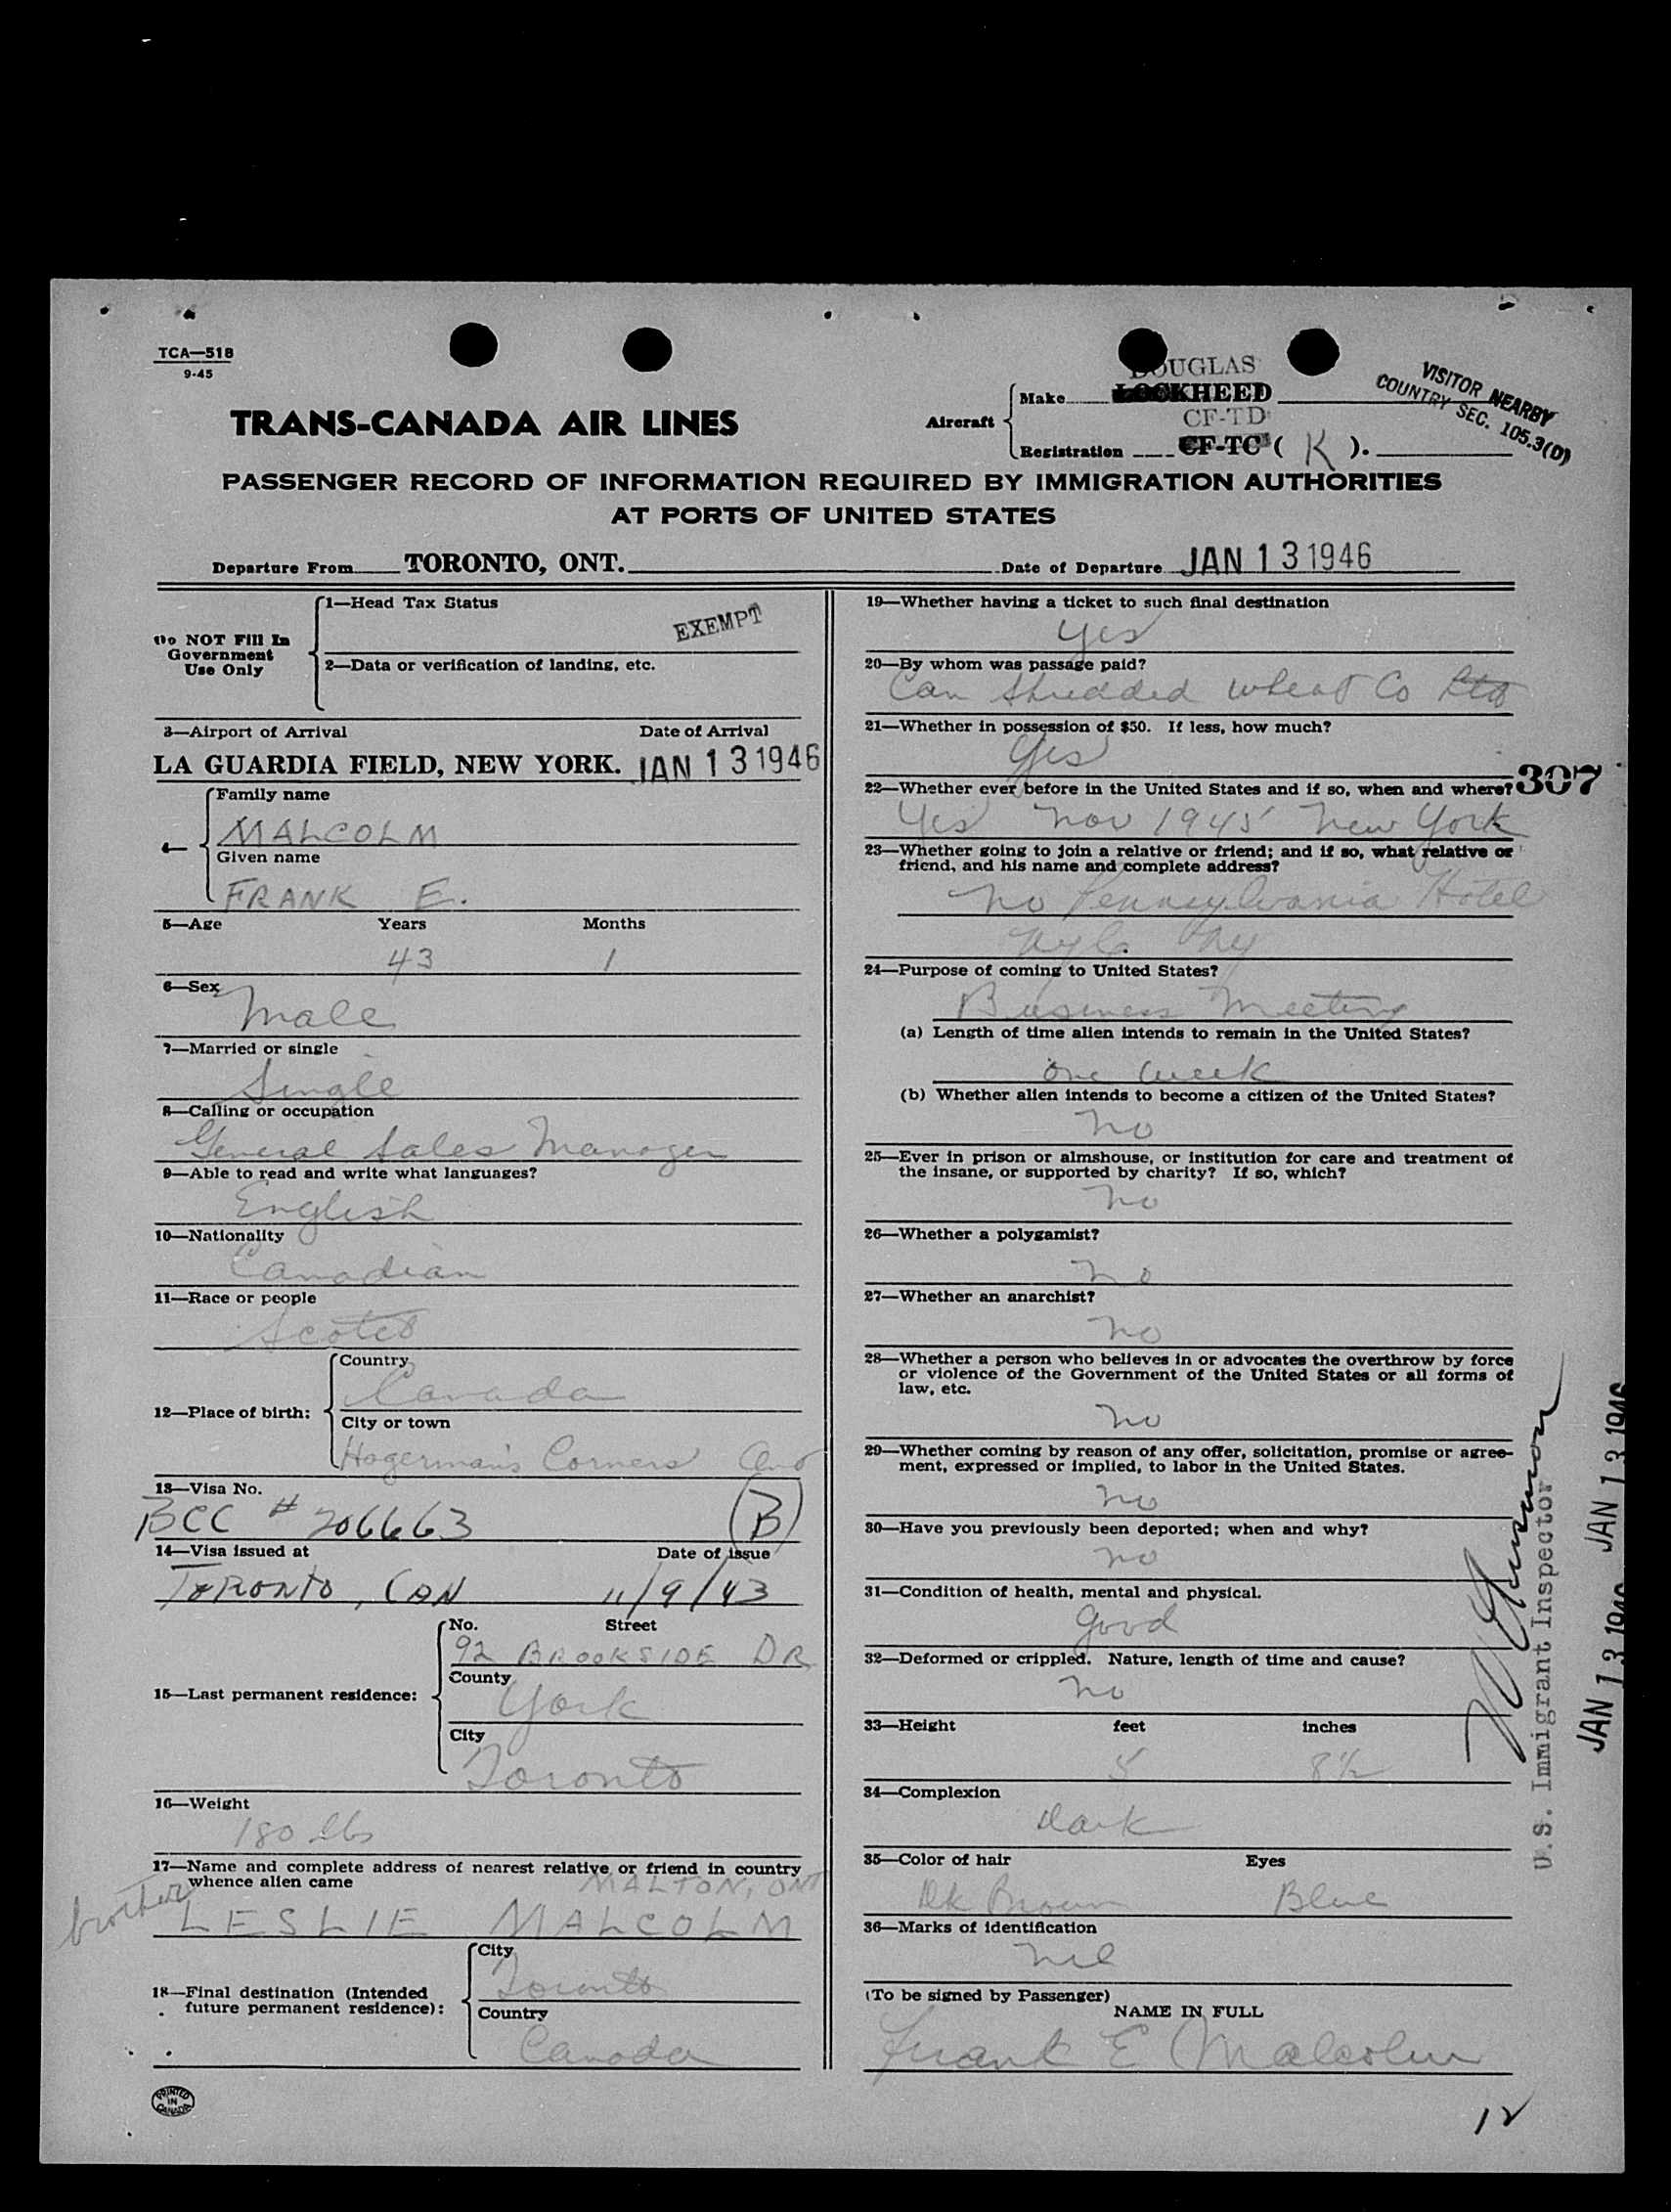 TCA—518
9-45
TRANS-CANADA AIR LINES
Aircraft
Make
DOUGLAS
LOCKHEED
CF-TD
Registration CF-TC ( K ).
VISITOR NEARBY
COUNTRY SEC. 105.3(D)
PASSENGER RECORD OF INFORMATION REQUIRED BY IMMIGRATION AUTHORITIES
AT PORTS OF UNITED STATES
Departure From TORONTO, ONT. Date of Departure JAN 13 1946
Do NOT Fill In
Government
Use Only
1—Head Tax Status
EXEMPT
2—Data or verification of landing, etc.
3—Airport of Arrival Date of Arrival
LA GUARDIA FIELD, NEW YORK. JAN 13 1946
4—
Family name
MALCOLM
Given name
FRANK E.
5—Age Years Months
43 1
6—Sex
Male
7—Married or single
Single
8—Calling or occupation
General Sales Manager
9—Able to read and write what languages?
English
10—Nationality
Canadian
11—Race or people
12—Place of birth:
Country
Canada
City or town
Hagerman's Corners Ont
13—Visa No.
BCC # 206663 (B)
14—Visa issued at Date of issue
TORONTO, CAN 11/9/43
15—Last permanent residence:
No. Street
92 BROOKSIDE DR
County
York
City
Toronto
16—Weight
180 lbs
17—Name and complete address of nearest relative or friend in country
whence alien came
MALTON, ONT
brother
LESLIE MALCOLM
18—Final destination (Intended
future permanent residence):
City
Toronto
Country
Canada
PRINTED
IN
CANADA
19—Whether having a ticket to such final destination
Yes
20—By whom was passage paid?
Can Shredded Wheat Co Ltd
21—Whether in possession of $50. If less, how much?
Yes
307
22—Whether ever before in the United States and if so, when and where?
Yes Nov 1945 New York
23—Whether going to join a relative or friend; and if so, what relative or
friend, and his name and complete address?
No Pennsylvania Hotel
NYC NY
24—Purpose of coming to United States?
Business Meeting
(a) Length of time alien intends to remain in the United States?
One week
(b) Whether alien intends to become a citizen of the United States?
No
25—Ever in prison or almshouse, or institution for care and treatment of
the insane, or supported by charity? If so, which?
No
26—Whether a polygamist?
No
27—Whether an anarchist?
No
28—Whether a person who believes in or advocates the overthrow by force
or violence of the Government of the United States or all forms of
law, etc.
No
29—Whether coming by reason of any offer, solicitation, promise or agree-
ment, expressed or implied, to labor in the United States.
No
30—Have you previously been deported; when and why?
No
31—Condition of health, mental and physical.
Good
32—Deformed or crippled. Nature, length of time and cause?
No
33—Height feet inches
5 8½
34—Complexion
Dark
35—Color of hair Eyes
Dk Brown Blue
36—Marks of identification
Nil
(To be signed by Passenger)
NAME IN FULL
Frank E Malcolm
U.S. Immigrant Inspector
JAN 13 1946
JAN 13 1946
12